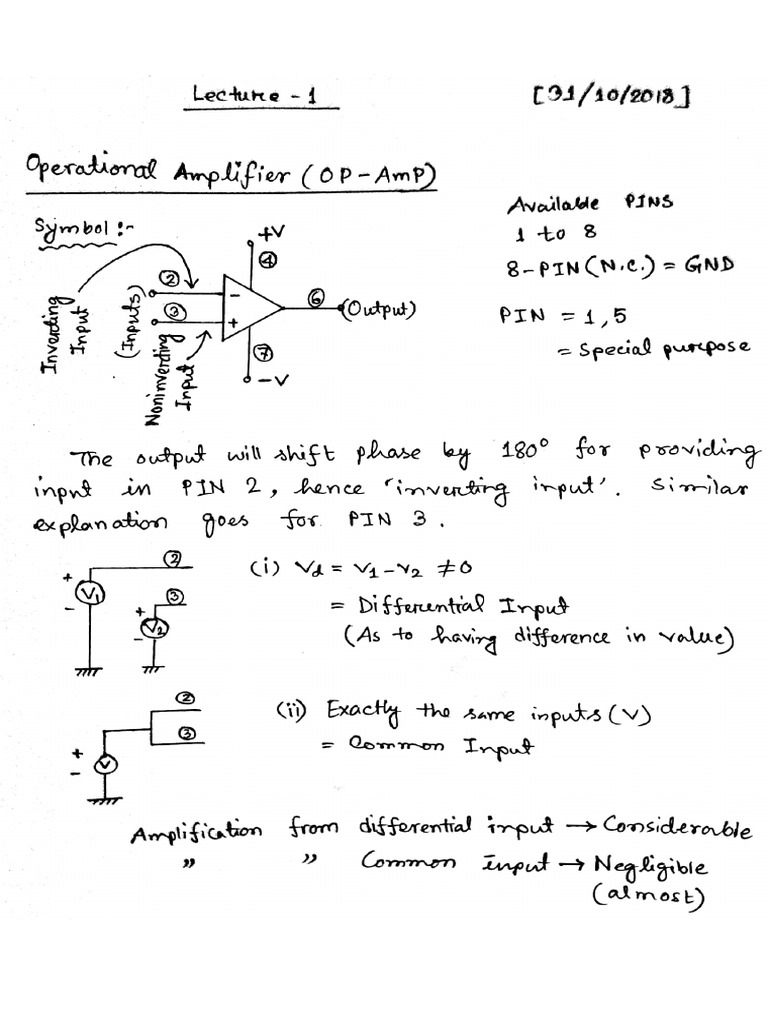 Lecture - 1
[31/10/2018]
Operational Amplifier (OP-AmP)
Symbol :-
+V
④
②
③
−
+
⑥
(Output)
⑦
−V
Inverting
Input
(Inputs)
Noninverting
Input
Available PINS
1 to 8
8-PIN (N.C.) = GND
PIN = 1, 5
= Special purpose
The output will shift phase by 180° for providing
input in PIN 2, hence 'inverting input'. Similar
explanation goes for PIN 3.
②
+
V1
−
③
+
V2
−
(i) Vd = V1 - V2 ≠ 0
= Differential Input
(As to having difference in value)
②
③
+
V
−
(ii) Exactly the same inputs (V)
= Common Input
Amplification from differential input → Considerable
" " Common input → Negligible
(almost)